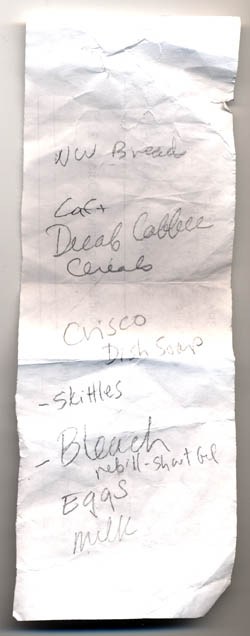 WW Bread
Caf +
Decaf Coffee
Cereals
Crisco
Dish Soap
- Skittles
- Bleach
refill - Shout Gel
Eggs
milk